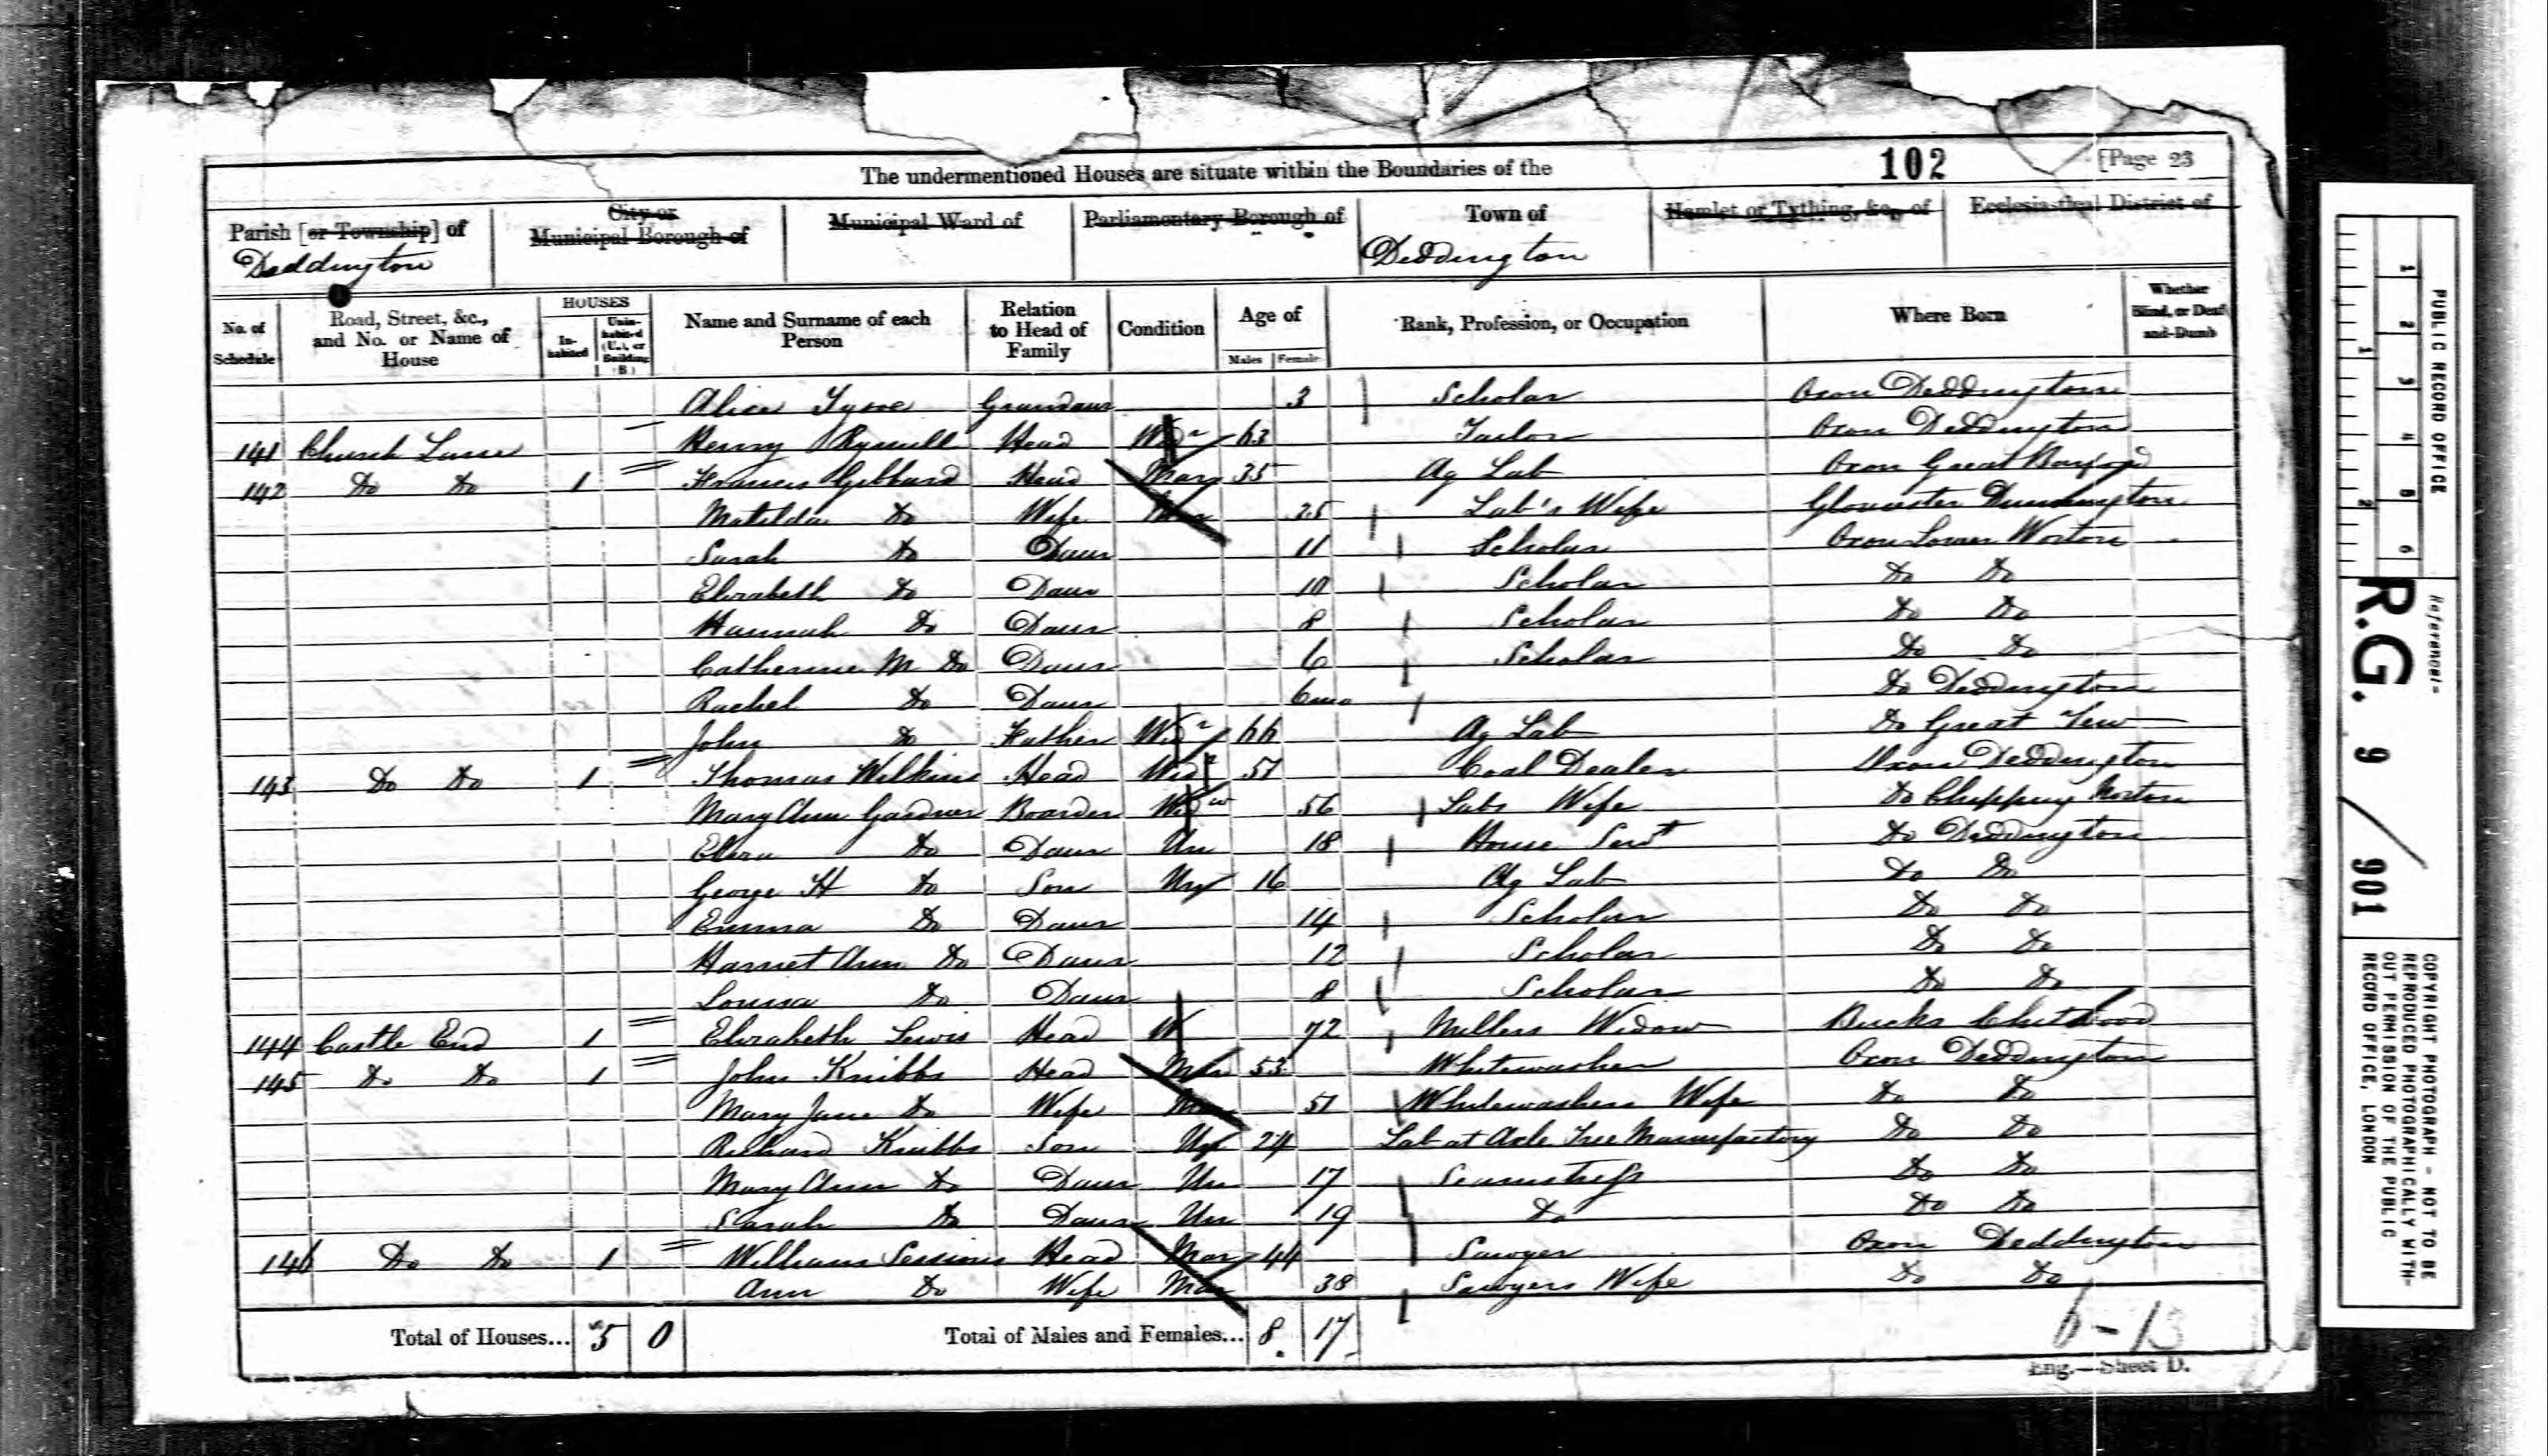 The undermentioned Houses are situate within the Boundaries of the 102 [Page 23
Parish [or Township] of City or Municipal Borough of Municipal Ward of Parliamentary Borough of Town of Hamlet or Tything, &c., of Ecclesiastical District of
Deddington Deddington
No. of Schedule Road, Street, &c., and No. or Name of House HOUSES Inhabited Uninhabited (U.), or Building (B.) Name and Surname of each Person Relation to Head of Family Condition Age of Males Females Rank, Profession, or Occupation Where Born Whether Blind, or Deaf-and-Dumb
Alice Tysoe Grandaur 3 Scholar Oxon Deddington
141 Church Lane Henry Rymill Head Widr 63 Tailor Oxon Deddington
142 Do Do 1 Francis Gibbard Head Mar 35 Ag Lab Oxon Great
Matilda Do Wife Mar 25 Lab's Wife Gloucester
Sarah Do Daur 11 Scholar Oxon Lower Worton
Elizabeth Do Daur 10 Scholar Do Do
Hannah Do Daur 8 Scholar Do Do
Catherine M Do Daur 6 Scholar Do Do
Rachel Do Daur 6mo Do Deddington
John Do Father Widr 66 Ag Lab Do Great Tew
143 Do Do 1 Thomas Wilkins Head Widr 51 Coal Dealer Oxon Deddington
Mary Ann Gardner Boarder Widw 56 Labs Wife Do Chipping Norton
Eliza Do Daur Un 18 House Servt Do Deddington
George H Do Son Un 16 Ag Lab Do Do
Emma Do Daur 14 Scholar Do Do
Harriet Ann Do Daur 12 Scholar Do Do
Louisa Do Daur 8 Scholar Do Do
144 Castle End 1 Elizabeth Lewis Head W 72 Millers Widow Bucks Chetwood
145 Do Do 1 John Knibbs Head Mar 53 Whitewasher Oxon Deddington
Mary Jane Do Wife Mar 51 Whitewashers Wife Do Do
Richard Knibbs Son Un 24 Lab at Axle Tree Manufactory Do Do
Mary Ann Do Daur Un 17 Seamstress Do Do
Sarah Do Daur Un 19 Do Do Do
146 Do Do 1 William Sessions Head Mar 44 Sawyer Oxon Deddington
Ann Do Wife Mar 38 Sawyers Wife Do Do
Total of Houses... 5 0 Total of Males and Females... 8 17
6-13
Eng.—Sheet D.
PUBLIC RECORD OFFICE
1 2 3 4 5 6
1 2
Reference:-
R.G. 9 / 901
COPYRIGHT PHOTOGRAPH - NOT TO BE
REPRODUCED PHOTOGRAPHICALLY WITH-
OUT PERMISSION OF THE PUBLIC
RECORD OFFICE, LONDON